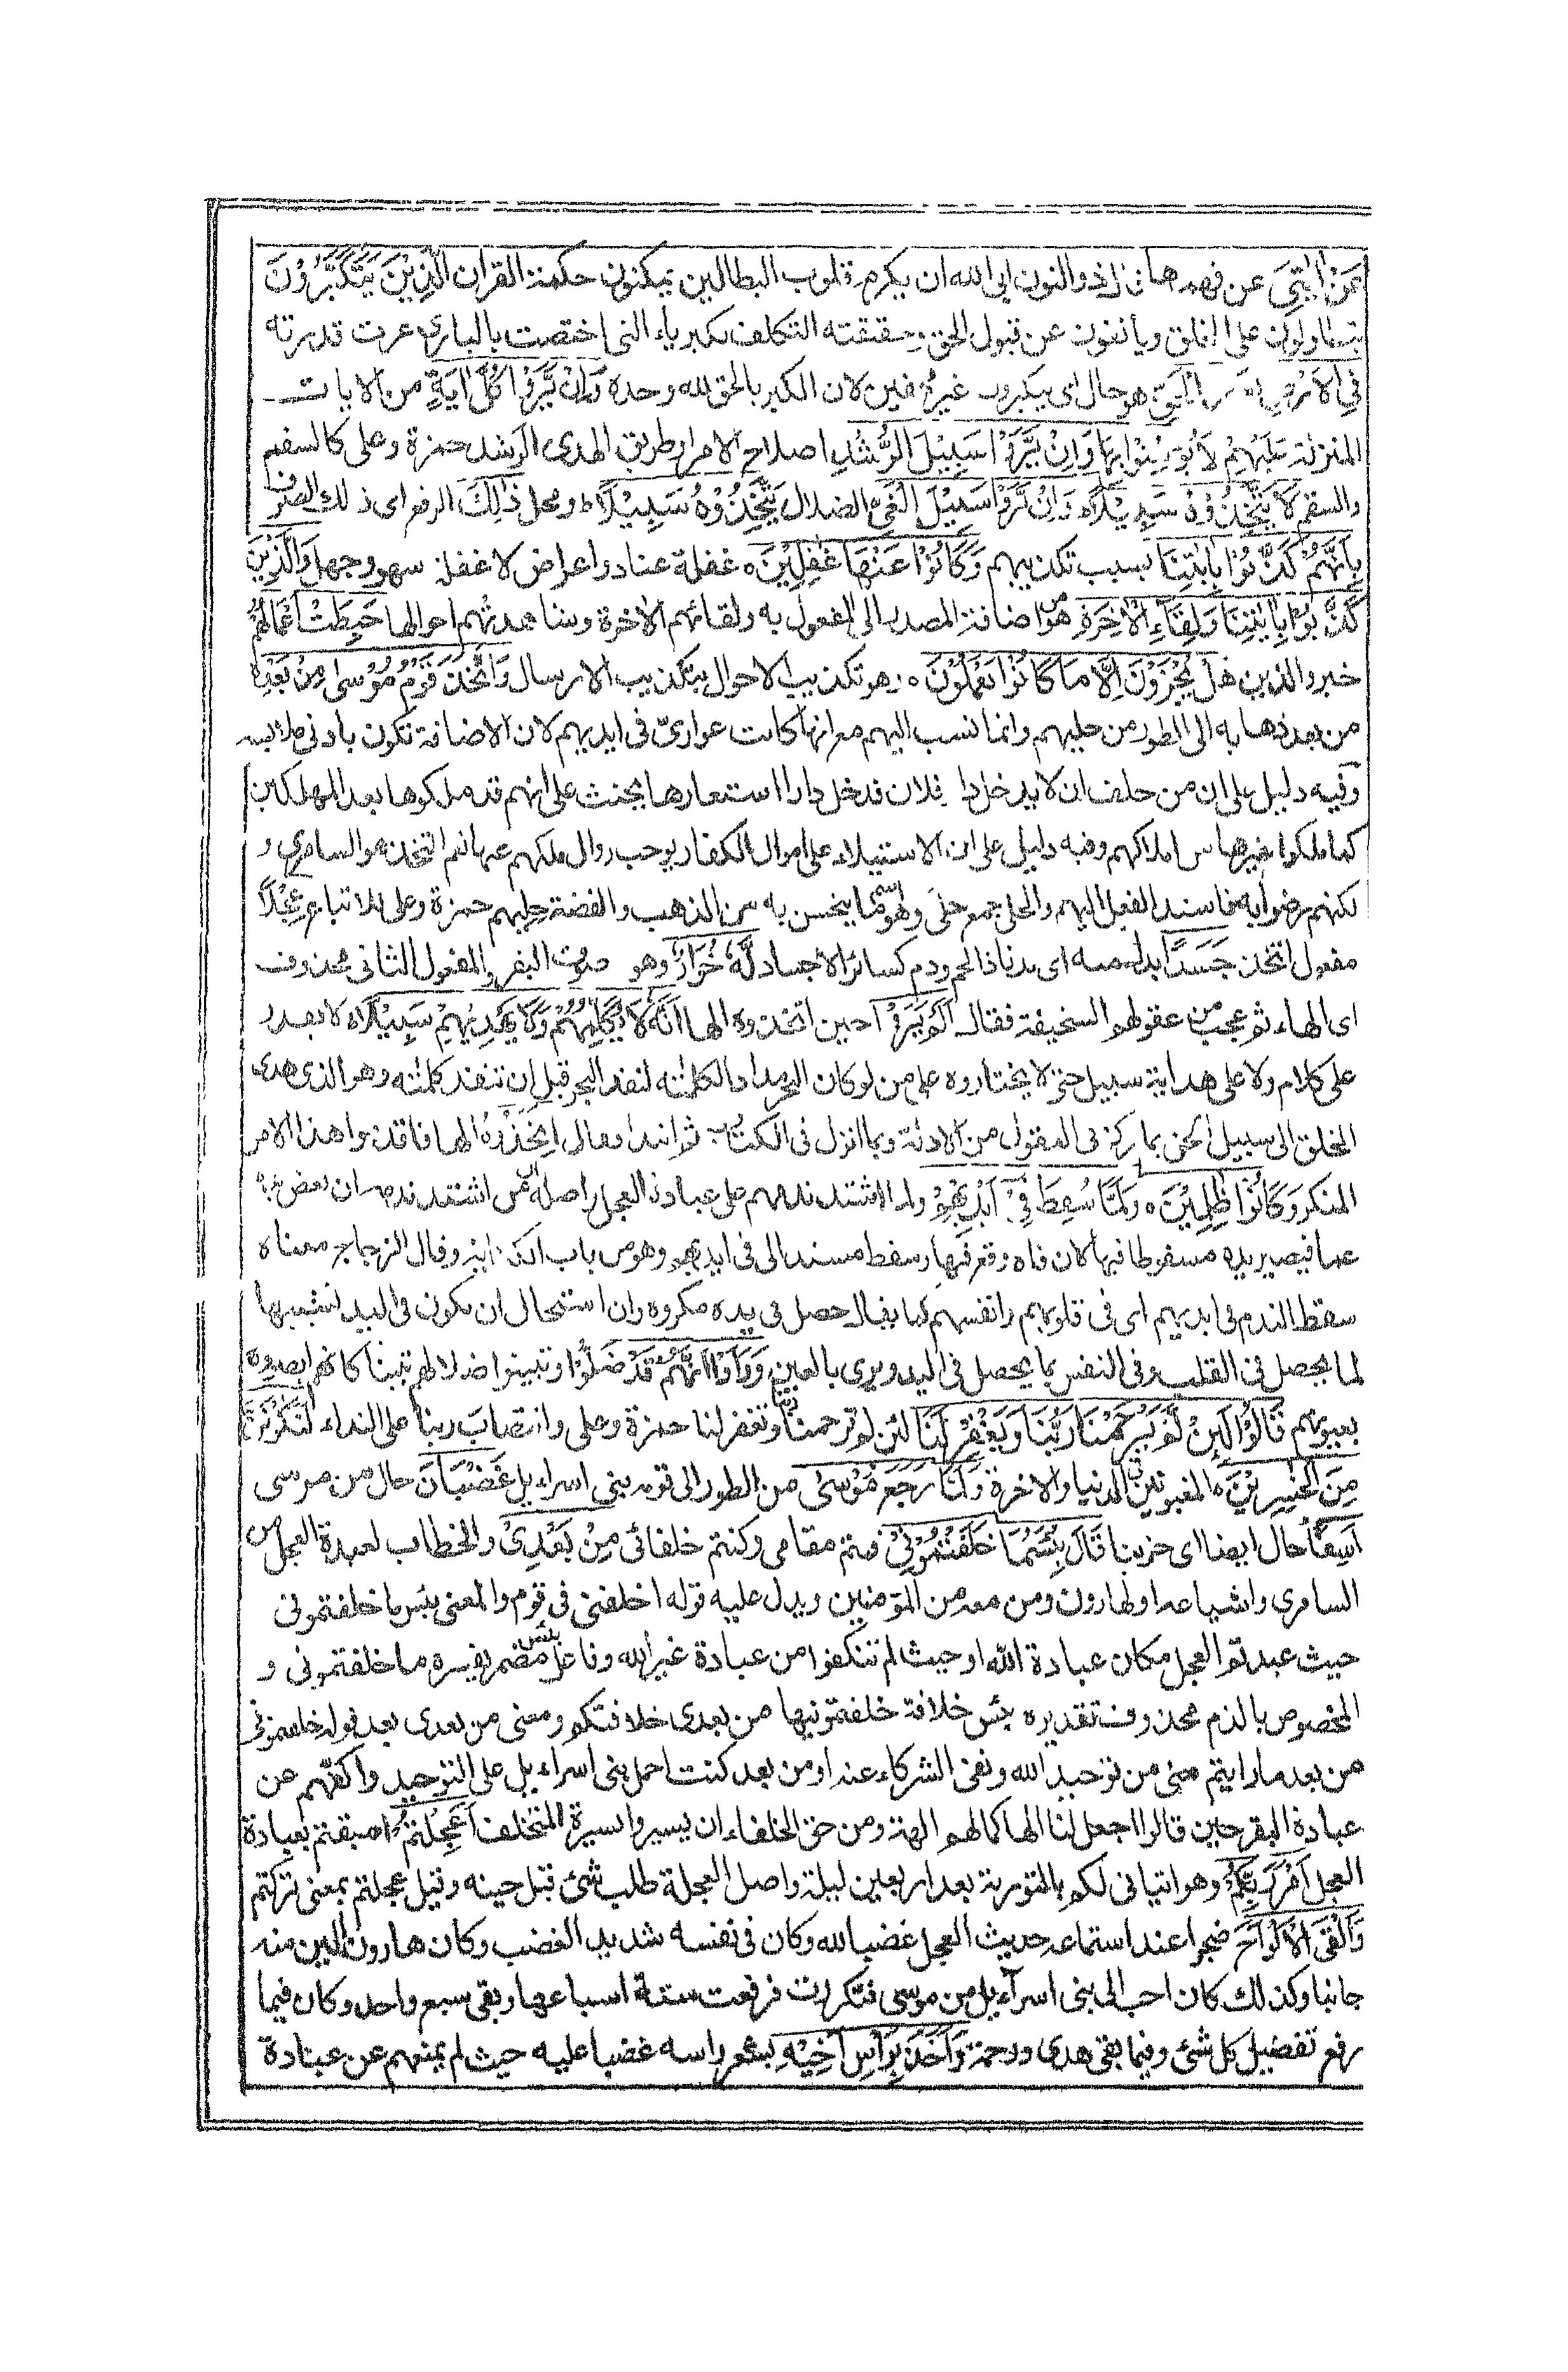 عَنْ اٰيٰتِيَ عن فهمها قال ذو النون ابى الله ان يكرم قلوب البطالين بمكنون حكمة القران الَّذِيْنَ يَتَكَبَّرُوْنَ
يتطاولون على الخلق ويأنفون عن قبول الحق وحقيقته التكلف لكبرياء التى اختصت بالبارى عزت قدرته
فِي الْاَرْضِ بِغَيْرِ الْحَقِّ هو حال اى يتكبرون غير محقين لان التكبر بالحق لله وحده وَاِنْ يَّرَوْا كُلَّ اٰيَةٍ من الايات
المنزلة عليهم لَا يُؤْمِنُوْا بِهَا وَاِنْ يَّرَوْا سَبِيْلَ الرُّشْدِ اصلاح الامر وطريق الهدى الرشد حمزة وعلى كالسقم
والسقم لَا يَتَّخِذُوْهُ سَبِيْلًا وَاِنْ يَّرَوْا سَبِيْلَ الْغَيِّ الضلال يَتَّخِذُوْهُ سَبِيْلًا ط ومحل ذٰلِكَ الرفع اى ذلك الصرف
بِاَنَّهُمْ كَذَّبُوْا بِاٰيٰتِنَا بسبب تكذيبهم وَكَانُوْا عَنْهَا غٰفِلِيْنَ ه غفلة عناد واعراض لا غفلة سهو وجهل وَالَّذِيْنَ
كَذَّبُوْا بِاٰيٰتِنَا وَلِقَاءِ الْاٰخِرَةِ هو من اضافة المصدر الى المفعول به ولقائهم الاخرة ومشاهدتهم احوالها حَبِطَتْ اَعْمَالُهُمْ
خبر والذين هَلْ يُجْزَوْنَ اِلَّا مَا كَانُوْا يَعْمَلُوْنَ ه وهو تكذيب الاحوال بتكذيب الارسال وَاتَّخَذَ قَوْمُ مُوْسٰى مِنْ بَعْدِهٖ
من بعد ذهابه الى الطور من حليهم وانما نسب اليهم مع انها كانت عوارىّ فى ايديهم لان الاضافة تكون بادنى ملابسة
وفيه دليل على ان من حلف ان لا يدخل دار فلان فدخل دارا استعارها يحنث على انهم قد ملكوها بعد المهلكين
كما ملكوا غيرها من املاكهم وفيه دليل على ان الاستيلاء على اموال الكفار يوجب زوال ملكهم عنها نعم المتخذ هو السامرى و
لكنهم رضوا به فاسند الفعل اليهم والحلى جمع حلى وهو اسم ما يتحسن به من الذهب والفضة حليهم حمزة وعلى للاتباع عِجْلًا
مفعول اتخذ جَسَدًا بدل منه اى بدنا ذا لحم ودم كسائر الاجساد لَّهٗ خُوَارٌ وهو صوت البقر والمفعول الثانى محذوف
اى الها ثم عجب من عقولهم السخيفة فقال اَلَمْ يَرَوْا حين اتخذوه الها اَنَّهٗ لَا يُكَلِّمُهُمْ وَلَا يَهْدِيْهِمْ سَبِيْلًا ه لا يقدر
على كلام ولا على هداية سبيل حتى لا يختاروه على من لو كان البحر مدادا لكلمته لنفد البحر قبل ان تنفد كلمته وهو الذى هدى
الخلق الى سبيل الحق بما ركز فى العقول من الادلة وبما انزل فى الكتب ثم ابتدا فقال اِتَّخَذُوْهُ الها فاقدموا هذا الامر
المنكر وَكَانُوْا ظٰلِمِيْنَ ه وَلَمَّا سُقِطَ فِيْ اَيْدِيْهِمْ ولما اشتد ندمهم على عبادة العجل واصله ان من اشتد ندمه ان يعض يده
غما فيصير يده مسقوطا فيها لان فاه وقع فيها وسقط مسند الى فى ايديهم وهو من باب الكناية وقال الزجاج معناه
سقط الندم فى ايديهم اى فى قلوبهم وانفسهم كما يقال حصل فى يده مكروه وان استحال ان يكون فى اليد تشبيها
لما يحصل فى القلب وفى النفس بما يحصل فى اليد ويرى بالعين وَرَاَوْا اَنَّهُمْ قَدْ ضَلُّوْا وتبينوا ضلالهم تبينا كانهم ابصروه
بعيونهم قَالُوْا لَئِنْ لَّمْ يَرْحَمْنَا رَبُّنَا وَيَغْفِرْ لَنَا لئن لم ترحمنا ربنا وتغفر لنا حمزة وعلى وانتصاب ربنا على النداء لَنَكُوْنَنَّ
مِنَ الْخٰسِرِيْنَ ه المغبونين فى الدنيا والاخرة وَلَمَّا رَجَعَ مُوْسٰى من الطور الى قومه بنى اسراءيل غَضْبَانَ حال من موسى
اَسِفًا حال ايضا اى حزينا قَالَ بِئْسَمَا خَلَفْتُمُوْنِيْ قمتم مقامى وكنتم خلفائى مِنْ بَعْدِيْ والخطاب لعبدة العجل من
السامرى واشياعه او لهارون ومن معه من المؤمنين ويدل عليه قوله اخلفنى فى قوم والمعنى بئس ما خلفتمونى
حيث عبدتم العجل مكان عبادة الله او حيث لم تنكفوا من عبادة غير الله وفاعل بئس مضمر يفسره ما خلفتمونى و
المخصوص بالذم محذوف تقديره بئس خلافة خلفتمونيها من بعدى خلافتكم ومعنى من بعدى بعد قوله خلفتمونى
من بعد ما رايتم منى من توحيد الله ونفى الشركاء عنه او من بعد كنت احمل بنى اسراءيل على التوحيد واكفهم عن
عبادة البقر حين قالوا اجعل لنا الها كما لهم الهة ومن حق الخلفاء ان يسيروا بسيرة المتخلف اَعَجِلْتُمْ اسبقتم بعبادة
العجل اَمْرَ رَبِّكُمْ وهو اتيانى لكم بالتورىة بعد اربعين ليلة واصل العجلة طلب شئ قبل حينه وقيل عجلتم بمعنى تركتم
وَاَلْقَى الْاَلْوَاحَ ضجرا عند استماعه حديث العجل غضبا لله وكان فى نفسه شديد الغضب وكان هارون الين منه
جانبا وكذلك كان احب الى بنى اسرآءيل من موسى فتكسرت فرفعت ستة اسباعها وبقى سبع واحد وكان فيما
رفع تفضيل كل شئ وفيما بقى هدى ورحمة وَاَخَذَ بِرَاْسِ اَخِيْهِ بشعر راسه غضبا عليه حيث لم يمنعهم عن عبادة